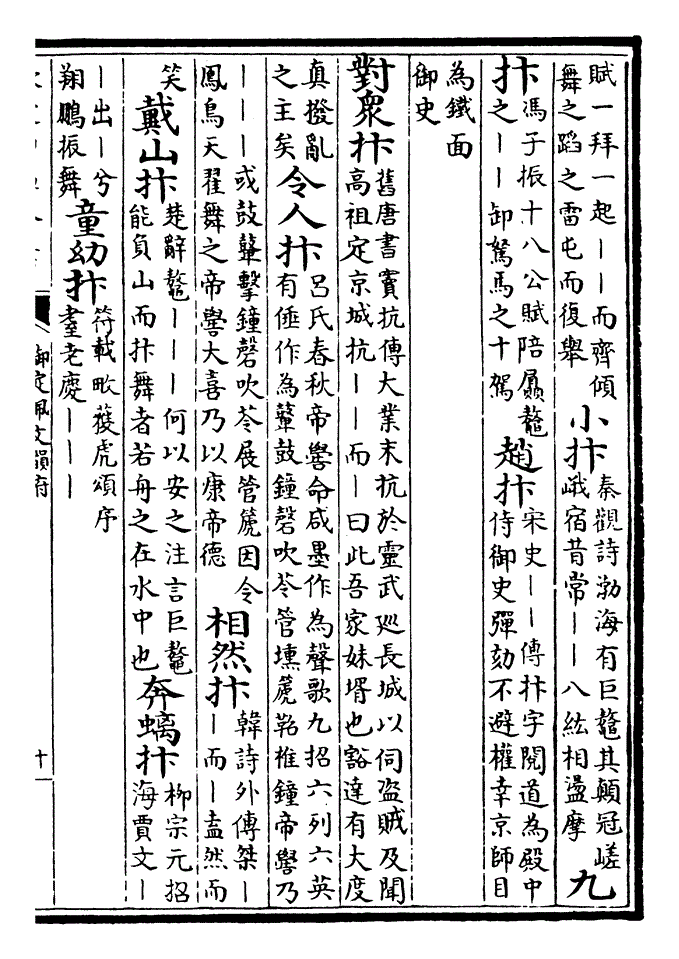 賦一拜一起丨丨而齊傾
舞之蹈之雷屯而復舉
小抃
秦觀詩渤海有巨鼇其顛冠嵯
峨宿昔常丨丨八紘相盪摩
九
抃
馮子振十八公賦陪贔鼇
之丨丨卸駑馬之十駕
趙抃
宋史丨丨傳抃字閱道為殿中
侍御史彈劾不避權幸京師目
為鐵面
御史
對衆抃
舊唐書竇抗傳大業末抗於靈武巡長城以伺盜賊及聞
高祖定京城抗丨丨而丨曰此吾家妹壻也豁達有大度
真撥亂
之主矣
令人抃
呂氏春秋帝嚳命咸墨作為聲歌九招六列六英
有倕作為鼙鼓鐘磬吹苓管壎篪鞀椎鐘帝嚳乃
丨丨丨或鼓鼙擊鐘磬吹苓展管篪因令
鳳鳥天翟舞之帝嚳大喜乃以康帝德
相然抃
韓詩外傳桀丨
丨而丨盍然而
笑
戴山抃
楚辭鼇丨丨丨何以安之注言巨鼇
能負山而抃舞者若舟之在水中也
奔螭抃
柳宗元招
海賈文丨
丨出丨兮
翔鵬振舞
童幼抃
符載畋獲虎頌序
耋老慶丨丨丨
御定佩文韻府
十